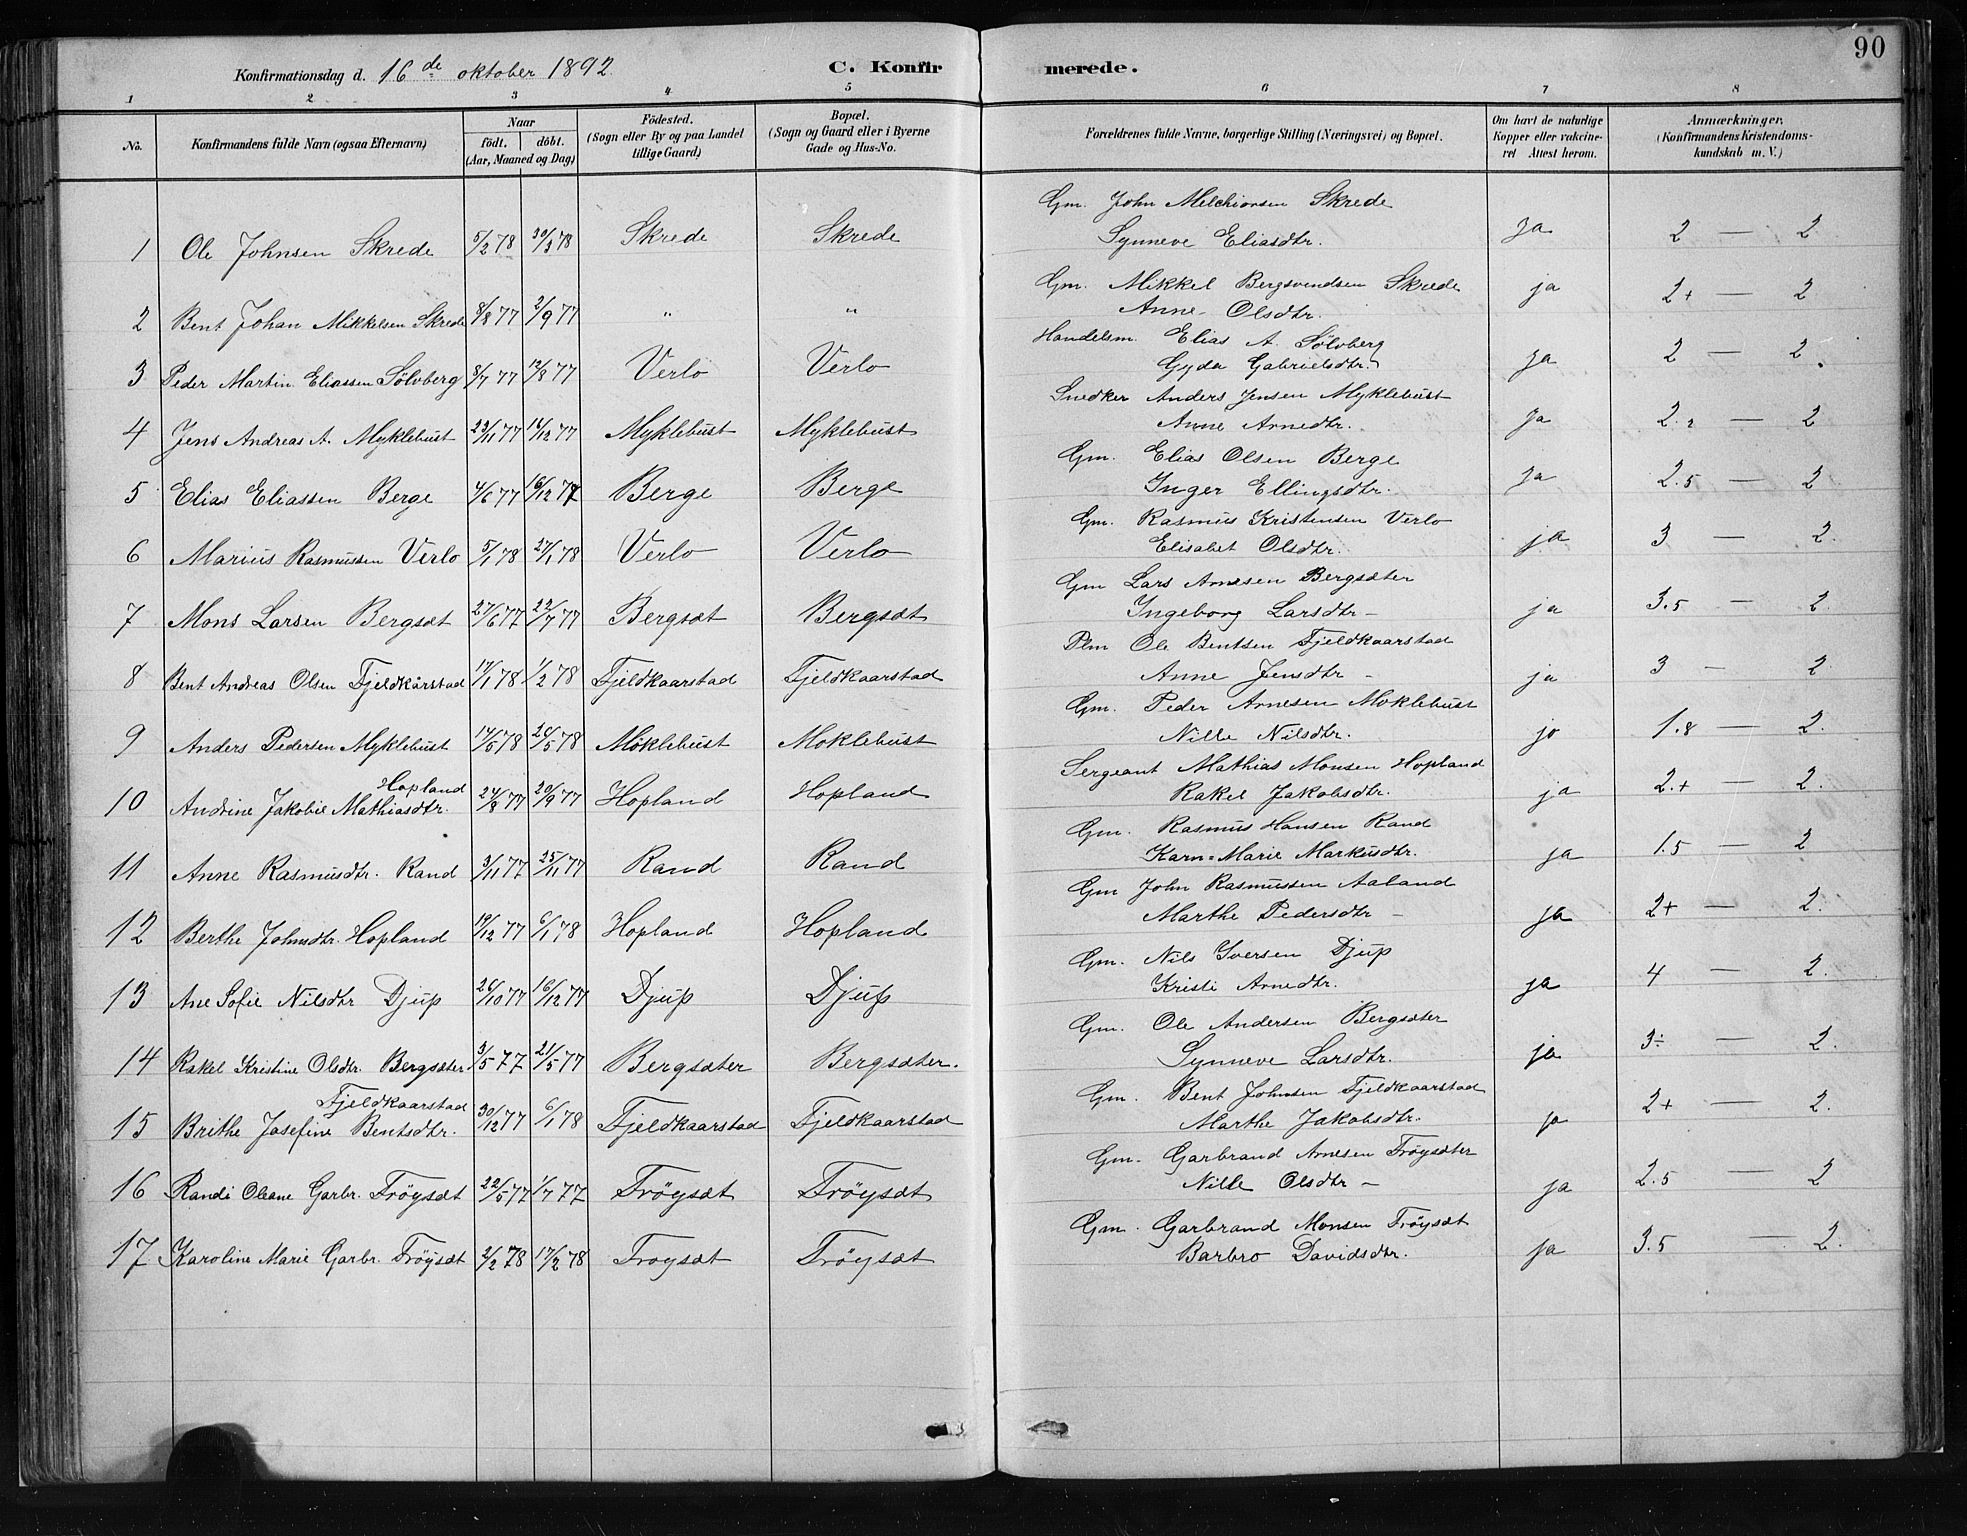 90
Konfirmationsdag d. 16de oktober 1892.
C. Konfirmerede.
1 2 3 4 5 6 7 8
No. | Konfirmandens fulde Navn (ogsaa Efternavn) | Naar födt. döbt. (Aar, Maaned og Dag) | Födested. (Sogn eller By og paa Landet tillige Gaard) | Bopæl. (Sogn og Gaard eller i Byerne Gade og Hus-No. | Forældrenes fulde Navne, borgerlige Stilling (Næringsvei) og Bopæl. | Om havt de naturlige Kopper eller vakcineret Attest herom. | Anmærkninger, (Konfirmandens Kristendomskundskab m. V.)
1 Ole Johnsen Skrede 5/2 78 30/3 78 Skrede Skrede Gm. John Melchiorsen Skrede
Synneve Eliasdtr. Ja 2 — 2
2 Bent Johan Mikkelsen Skrede 8/8 77 2/9 77 " " Gm. Mikkel Bergsvendsen Skrede
Anne Olsdtr. ja 2+ — 2
3 Peder Martin Eliassen Sölvberg 8/7 77 12/8 77 Verlo Verlo Handelsm. Elias A. Sölvberg
Gyda Gabrielsdtr. Ja 2 — 2.
4 Jens Andreas A. Myklebust 23/11 77 16/12 77 Myklebust Myklebust Snedker Anders Jensen Myklebust
Anne Arnedtr. Ja 2.2 — 2
5 Elias Eliassen Berge 4/6 77 16/12 77 Berge Berge Gm. Elias Olsen Berge
Inger Ellingsdtr. Ja 2.5 — 2
6 Marius Rasmussen Verlo 5/1 78 27/1 78 Verlo Verlo Gm. Rasmus Kristensen Verlo
Elisabet Olsdtr. ja 3 — 2.
7 Mons Larsen Bergsæt 27/6 77 22/7 77 Bergsæt Bergsæt Gm Lars Arnesen Bergsæter
Ingeborg Larsdtr — ja 3.5 — 2.
8 Bent Andreas Olsen Fjeldkårstad 17/1 78 1/2 78 Fjeldkaarstad Fjeldkaarstad Plm Ole Bentsen Fjeldkaarstad
Anne Jensdtr — ja 3 — 2
9 Anders Pedersen Myklebust 14/5 78 26/5 78 Möklebust Moklebust Gm. Peder Arnesen Moklebust
Nille Nilsdtr. ja 1.8 — 2.
10 Andrine Jakobie Mathiasdtr. Hopland 24/8 77 20/9 77 Hopland Hopland Sergeant Mathias Monsen Hopland
Rakel Jakobsdtr. ja 2+ — 2.
11 Anne Rasmusdtr. Rand 3/11 77 25/11 77 Rand Rand Gm. Rasmus Hansen Rand
Karn-Marie Markusdtr. ja 1.5 — 2
12 Berthe Johnsdtr. Hopland 19/12 77 6/1 78 Hopland Hopland Gm John Rasmussen Aaland
Marthe Pedersdtr — ja 2+ — 2.
13 Ane Sofie Nilsdtr Djup 26/10 77 16/12 77 Djup Djup Gm. Nils Iversen Djup
Kristi Arnedtr. ja 4 — 2.
14 Rakel Kristine Olsdtr. Bergsæter 3/5 77 21/5 77 Bergsæter Bergsæter. Gm. Ole Andersen Bergsæter
Synneve Larsdtr. ja 3÷ — 2.
15 Brithe Josefine Bentsdtr. Fjeldkaarstad 30/12 77 6/1 78 Fjeldkaarstad Fjeldkaarstad Gm. Bent Johnsen Fjeldkaarstad
Marthe Jakobsdtr. ja 2+ — 2.
16 Randi Oleane Garbr. Fröysæt 22/5 77 1/7 77 Fröysæt Fröysæt Gm. Garbrand Arnesen Fröysæter
Nille Olsdtr — ja 2.5 — 2
17 Karoline Marie Garbr. Fröysæt 2/2 78 17/2 78 Froysæt Fröysæt Gm. Garbrand Monsen Fröysæt
Barbro Davidsdtr. ja 3.5 — 2.